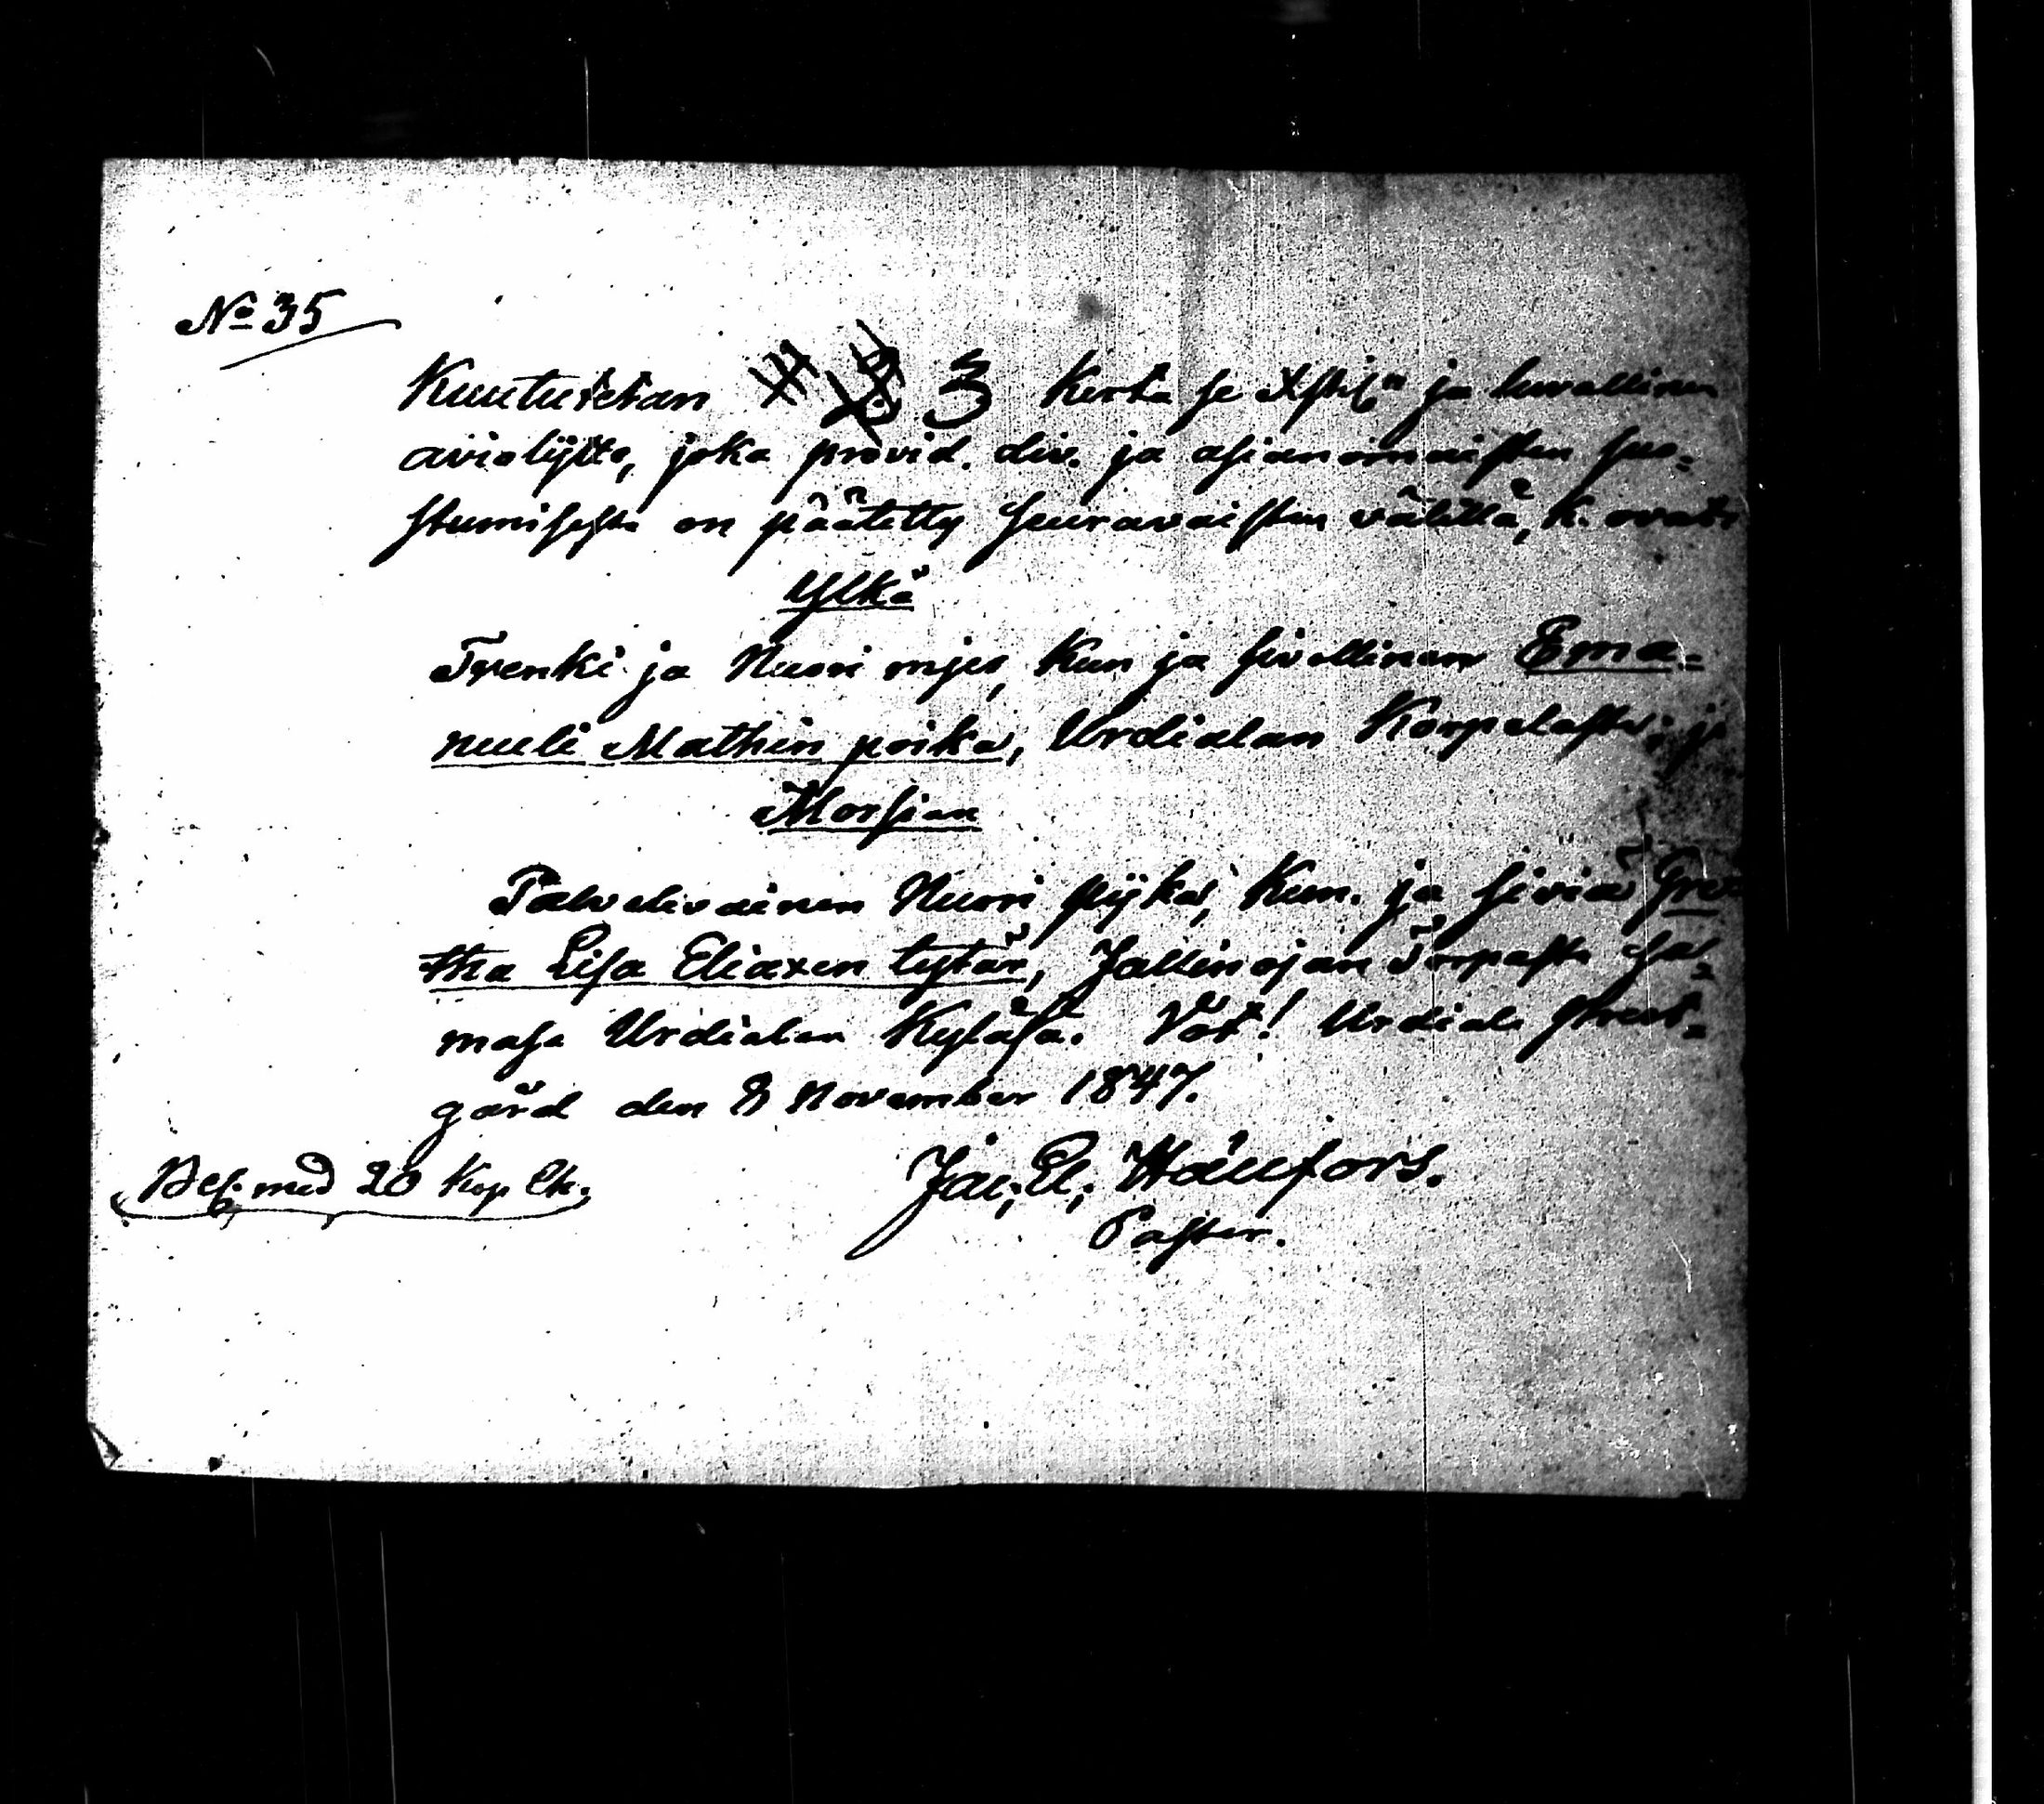 No 35
Kuulutetan 3 Kerta se ja luvallinen
aviolijtto, joka provid. div. ja asianomaisten suo=
stumisesta on päätetty seuravaisten välillä, k. ovat:
Ylkä
Trenki ja Nuori mjes, Kun ja sivellinen Ema=
nueli Mathin poika, Urdialan Korpelasta; ja
Morsian
Palvelivainen Nuori pijka, Kun. ja siviä Gre=
tha Lisa Eliaxen tytär, Jallinojan Torpasta
masa Urdialan Kyläsä. Vot! Urdiala Prest=
gård den 8 November 1847.
Bel. med 20 Kop.
Jac. El. Hällfors.
Pastor.